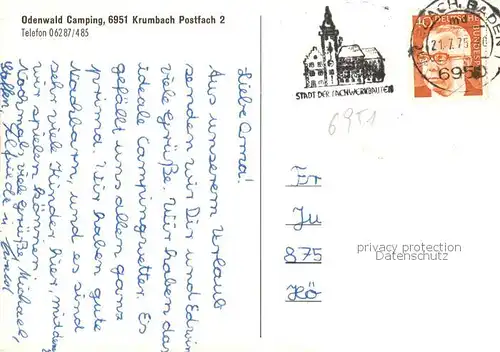 Odenwald Camping, 6951 Krumbach Postfach 2
Telefon 06287/485
Liebe Oma!
Aus unserem Urlaub
senden wir Dir und Edwin
viele Grüße. Wir haben das
ideale Campingwetter. Es
gefällt uns allen ganz
prima. Wir haben gute
Nachbarn, und es sind
sehr viele Kinder hier, mit denen
wir spielen können.
Nochmals viele Grüße, Michael,
STADT DER FACHWERKBAUTEN
BACH, BADEN
21.7.75
6950
40
DEUTSCHE BUNDESPOST
6951
Er
Ju
875
Hö
privacy protection watermark